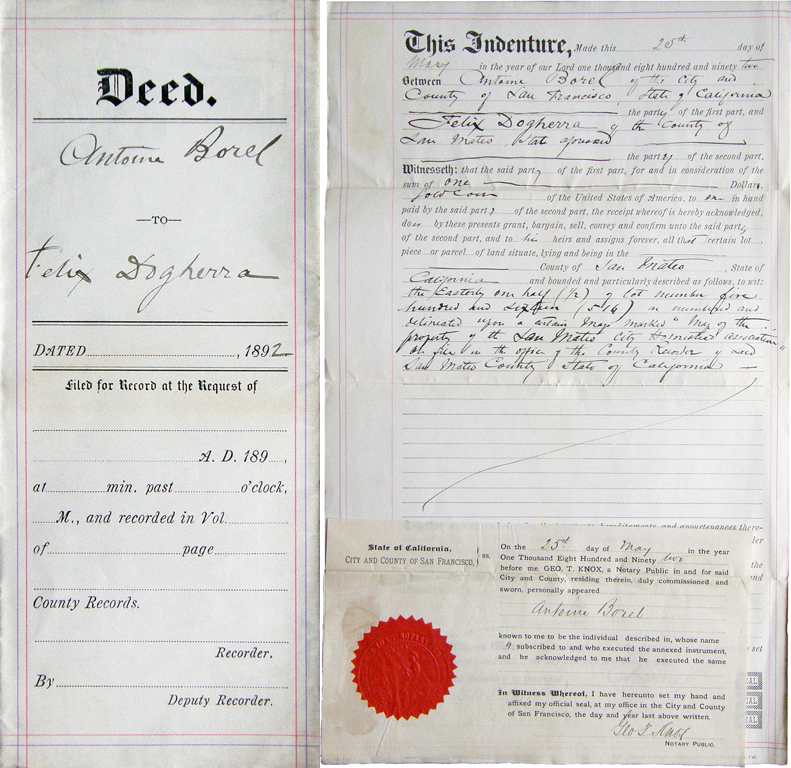 Deed.
Antoine Borel
—TO—
Felix Dogherra
DATED , 1892
Filed for Record at the Request of
A. D. 189 ,
at min. past o'clock,
M., and recorded in Vol.
of page
County Records.
Recorder.
By
Deputy Recorder.
This Indenture, Made this 25th day of
May in the year of our Lord one thousand eight hundred and ninety two
Between Antoine Borel of the City and
County of San Francisco, State of California
the party of the first part, and
Felix Dogherra of the County of
San Mateo State aforesaid
the party of the second part,
Witnesseth: that the said party of the first part, for and in consideration of the
sum of one Dollars,
Gold Coin of the United States of America, to in hand
paid by the said party of the second part, the receipt whereof is hereby acknowledged,
does by these presents grant, bargain, sell, convey and confirm unto the said party
of the second part, and to his heirs and assigns forever, all that certain lot
piece or parcel of land situate, lying and being in the
County of San Mateo, State of
California and bounded and particularly described as follows, to wit:
the Easterly one half (1/2) of lot number five
hundred and (516) as numbered and
delineated upon a certain Map marked "Map of the
property of the San Mateo City Homestead association"
on file in the office of the County Recorder of said
San Mateo County State of California
hereditaments and appurtenances there-
State of California,
CITY AND COUNTY OF SAN FRANCISCO, ss.
On the 25th day of May in the year
One Thousand Eight Hundred and Ninety two
before me GEO. T. KNOX, a Notary Public in and for said
City and County, residing therein, duly commissioned and
sworn, personally appeared
Antoine Borel
known to me to be the individual described in, whose name
is subscribed to and who executed the annexed instrument,
and he acknowledged to me that he executed the same
In Witness Whereof, I have hereunto set my hand and
affixed my official seal, at my office in the City and County
of San Francisco, the day and year last above written.
Geo T. Knox
NOTARY PUBLIC